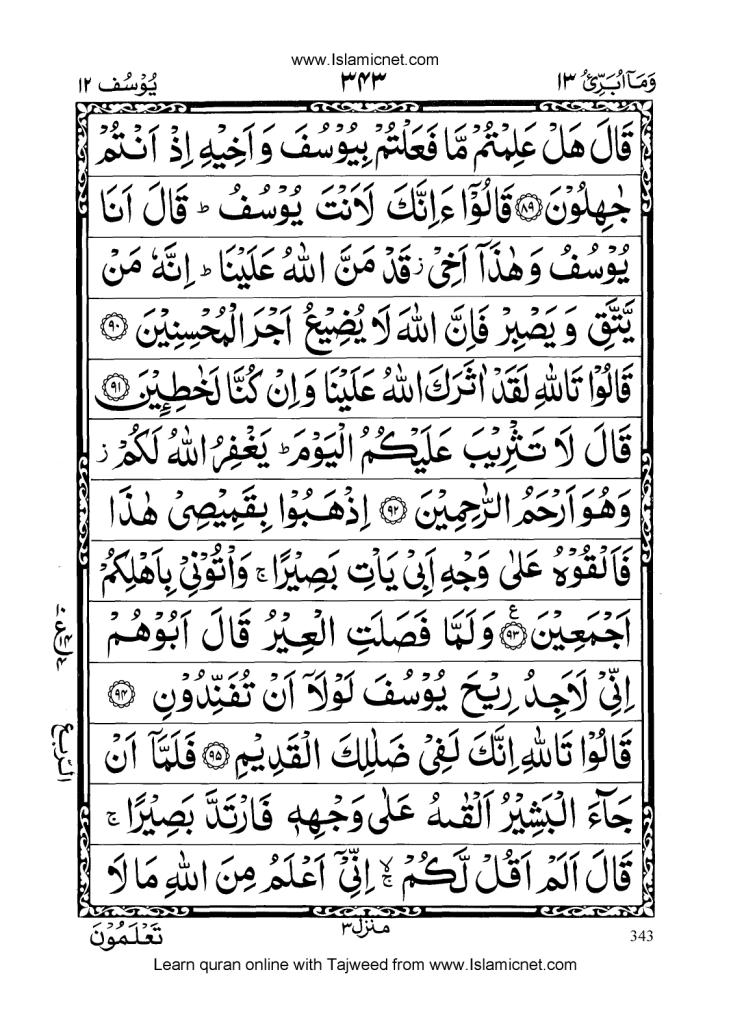 www.Islamicnet.com
وَمَاۤ اُبَرِّئُ ١٣
٣٤٣
يُوْسُف ١٢
قَالَ هَلْ عَلِمْتُمْ مَّا فَعَلْتُمْ بِيُوْسُفَ وَ اَخِيْهِ اِذْ اَنْتُمْ
جٰهِلُوْنَ ﴿٨٩﴾ قَالُوْۤا ءَاِنَّكَ لَاَنْتَ يُوْسُفُ ؕ قَالَ اَنَا
يُوْسُفُ وَ هٰذَاۤ اَخِيْ ز قَدْ مَنَّ اللّٰهُ عَلَيْنَا ؕ اِنَّهٗ مَنْ
يَّتَّقِ وَ يَصْبِرْ فَاِنَّ اللّٰهَ لَا يُضِيْعُ اَجْرَ الْمُحْسِنِيْنَ ﴿٩٠﴾
قَالُوْا تَاللّٰهِ لَقَدْ اٰثَرَكَ اللّٰهُ عَلَيْنَا وَ اِنْ كُنَّا لَخٰطِـِٕيْنَ ﴿٩١﴾
قَالَ لَا تَثْرِيْبَ عَلَيْكُمُ الْيَوْمَ ؕ يَغْفِرُ اللّٰهُ لَكُمْ ز
وَ هُوَ اَرْحَمُ الرّٰحِمِيْنَ ﴿٩٢﴾ اِذْهَبُوْا بِقَمِيْصِيْ هٰذَا
فَاَلْقُوْهُ عَلٰى وَجْهِ اَبِيْ يَاْتِ بَصِيْرًا ۚ وَ اْتُوْنِيْ بِاَهْلِكُمْ
اَجْمَعِيْنَ ﴿٩٣﴾ ع وَ لَمَّا فَصَلَتِ الْعِيْرُ قَالَ اَبُوْهُمْ
اِنِّيْ لَاَجِدُ رِيْحَ يُوْسُفَ لَوْلَاۤ اَنْ تُفَنِّدُوْنِ ﴿٩٤﴾
قَالُوْا تَاللّٰهِ اِنَّكَ لَفِيْ ضَلٰلِكَ الْقَدِيْمِ ﴿٩٥﴾ فَلَمَّاۤ اَنْ
جَآءَ الْبَشِيْرُ اَلْقٰىهُ عَلٰى وَجْهِهٖ فَارْتَدَّ بَصِيْرًا ۚ
قَالَ اَلَمْ اَقُلْ لَّكُمْ ۙۚ اِنِّيْۤ اَعْلَمُ مِنَ اللّٰهِ مَا لَا
الربع
تَعْلَمُوْنَ
منزل ٣
343
Learn quran online with Tajweed from www.Islamicnet.com